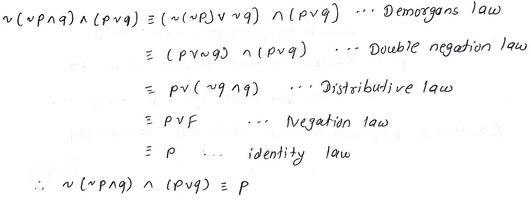 ~(~p∧q) ∧ (p∨q) ≡ (~(~p) ∨ ~q) ∧ (p∨q) ... Demorgans law
≡ (p∨~q) ∧ (p∨q) ... Double negation law
≡ p∨(~q∧q) ... Distributive law
≡ p∨F ... Negation law
≡ p ... identity law
∴ ~(~p∧q) ∧ (p∨q) ≡ p